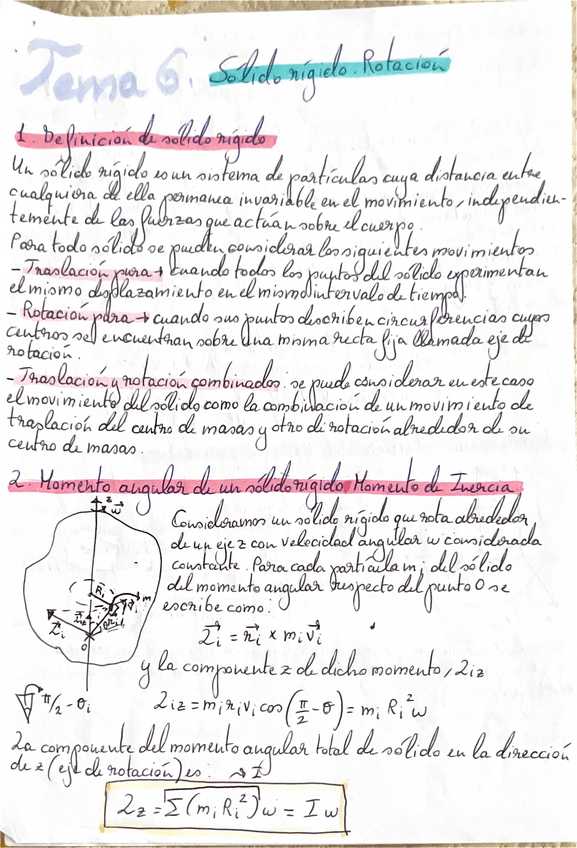 Tema 6. Sólido rígido. Rotación
1. Definición de sólido rígido
Un sólido rígido es un sistema de partículas cuya distancia entre
cualquiera de ella permanea invariable en el movimiento, independien-
temente de las fuerzas que actúan sobre el cuerpo.
Para todo sólido se pueden considerar los siguientes movimientos
- Traslación pura → cuando todos los puntos del sólido experimentan
el mismo desplazamiento en el mismo intervalo de tiempo.
- Rotación pura → cuando sus puntos describen circunferencias cuyos
centros se encuentran sobre una misma recta fija llamada eje de
rotación.
- Traslación y rotación combinados. se puede considerar en este caso
el movimiento del sólido como la combinación de un movimiento de
traslación del centro de masas y otro de rotación alrededor de su
centro de masas.
2. Momento angular de un sólido rígido. Momento de Inercia
Consideramos un sólido rígido que rota alrededor
de un eje z con velocidad angular w considerada
constante. Para cada partícula mi del sólido
del momento angular respecto del punto O se
escribe como:
L⃗i = r⃗i × mi v⃗i
y la componente z de dicho momento, Liz
π/2 - θi
Liz = mi ri vi cos(π/2 - θ) = mi Ri² w
La componente del momento angular total de sólido en la dirección
de z (eje de rotación) es: → I
Lz = Σ(mi Ri²) w = I w